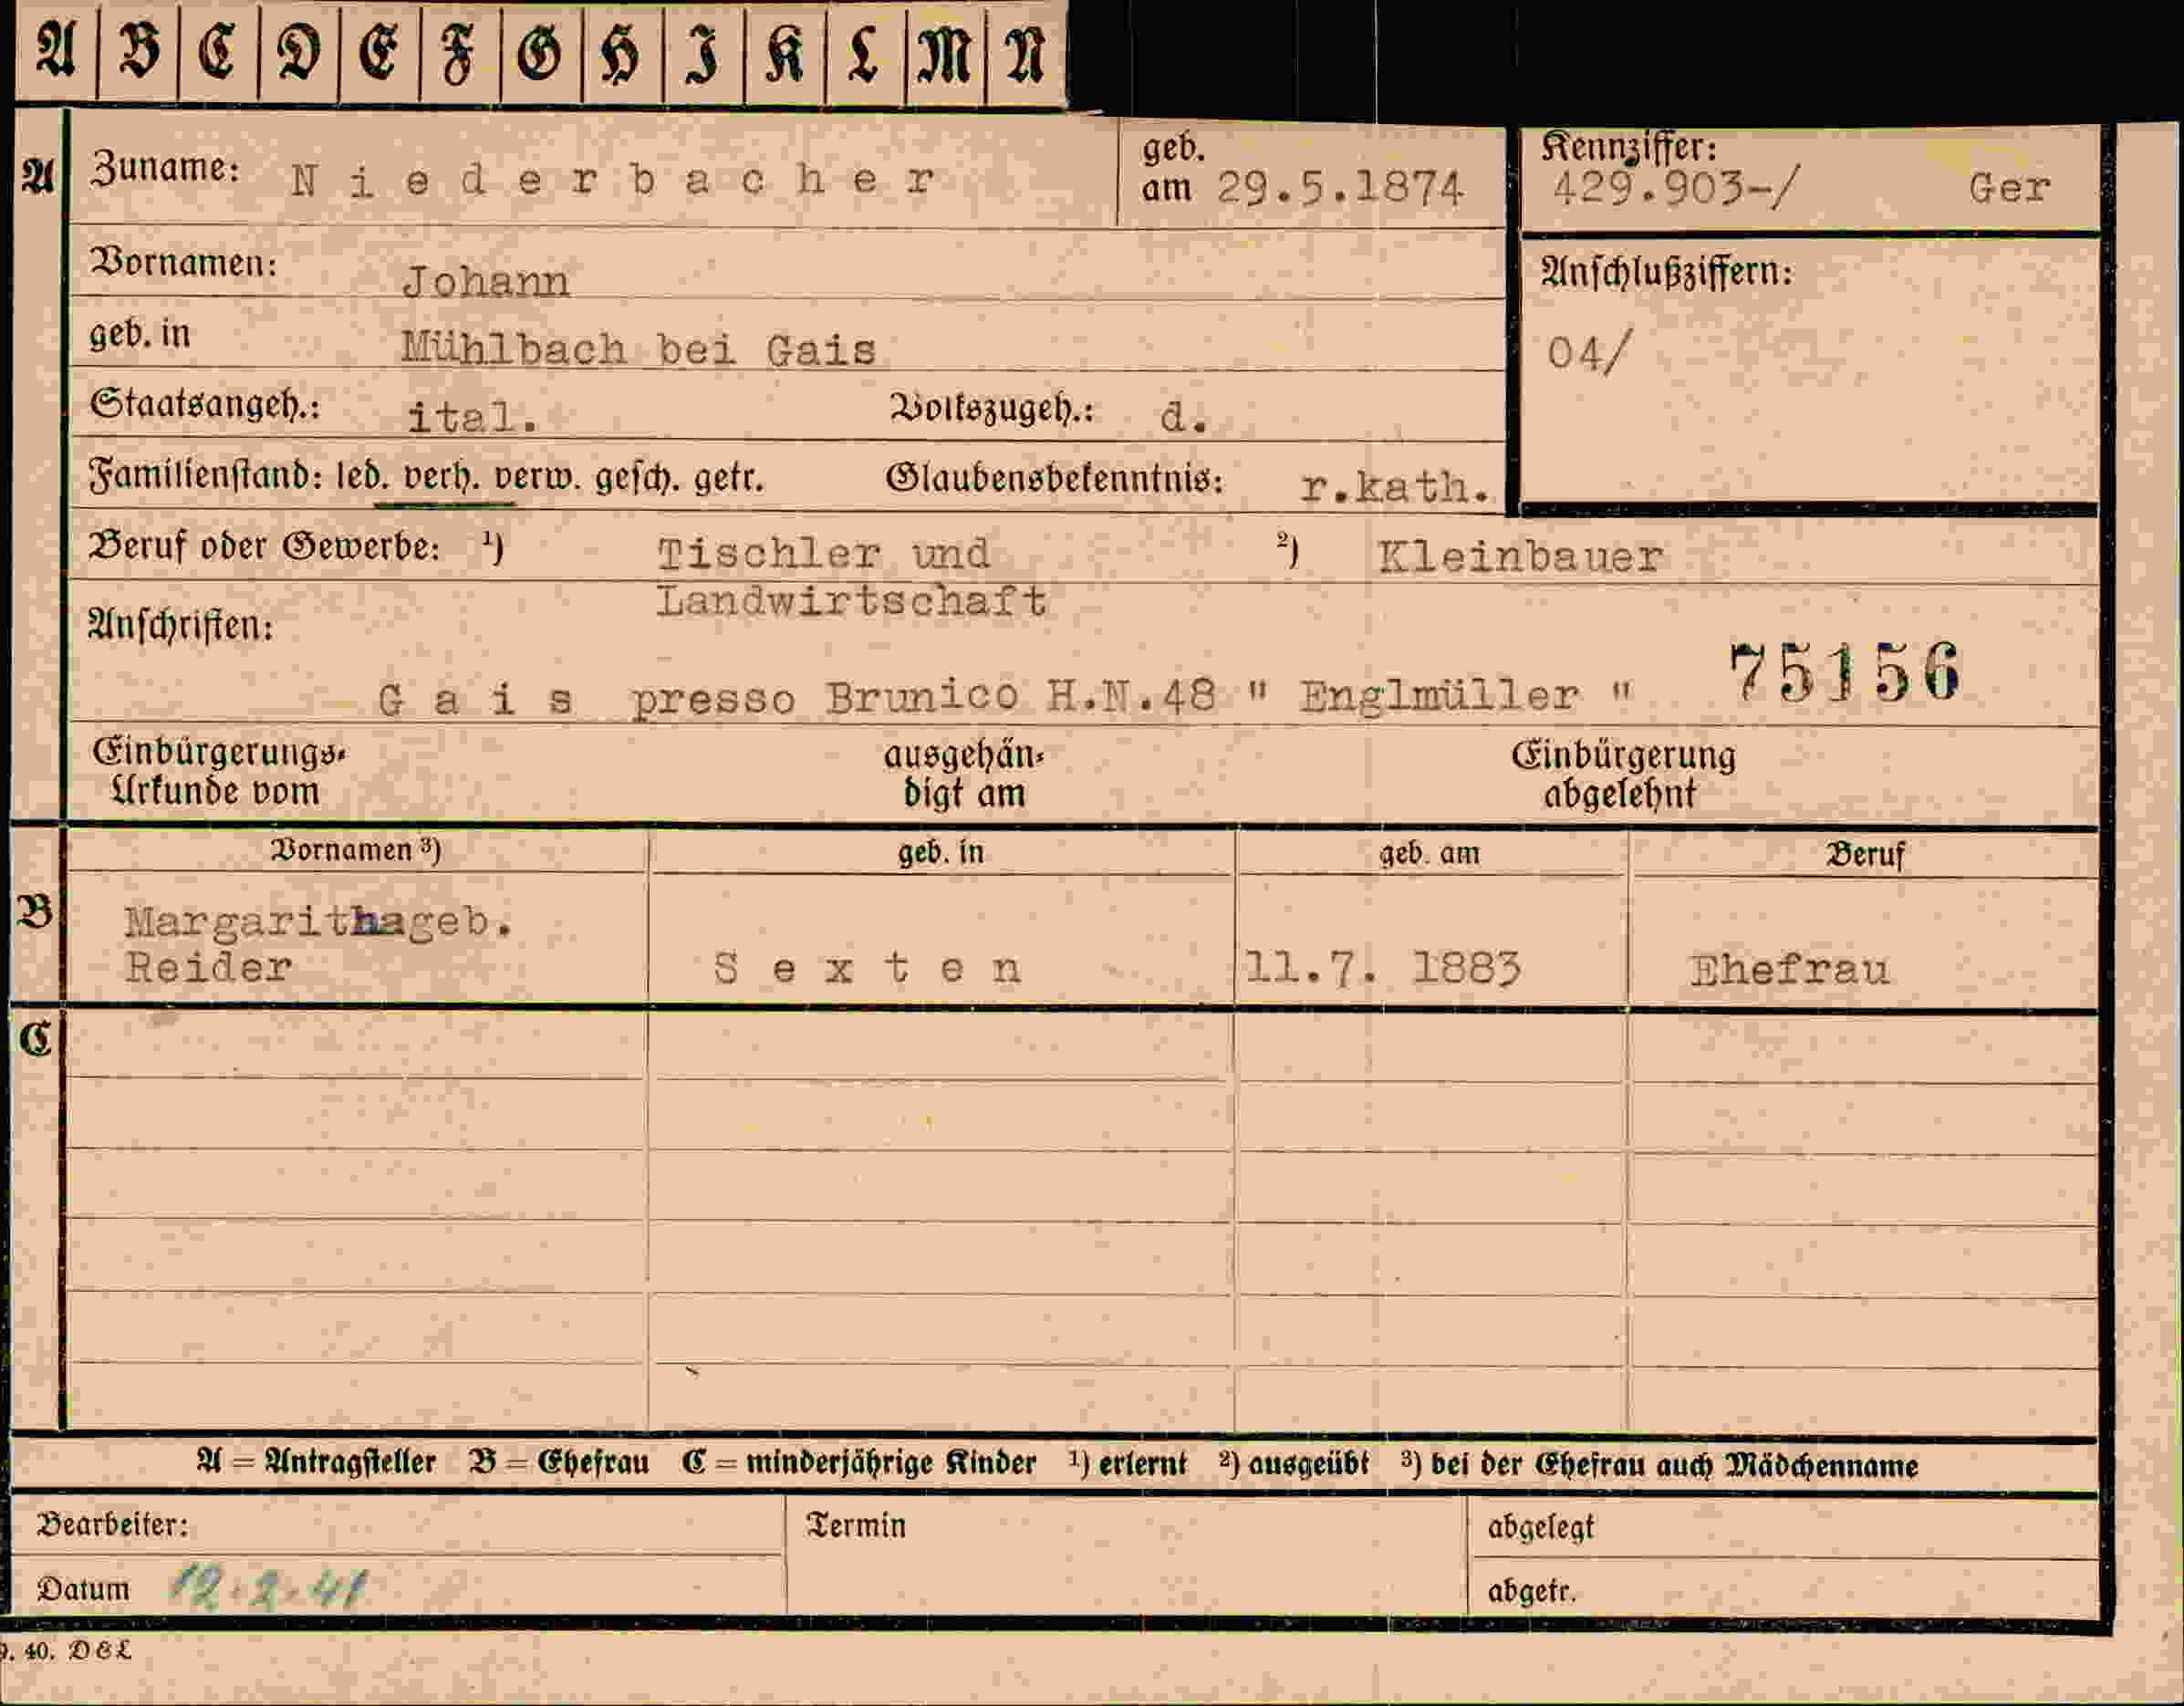 A B C D E F G H I K L M N
A Zuname: Niederbacher geb. am 29.5.1874
Kennziffer: 429.903-/ Ger
Vornamen: Johann
Anschlußziffern:
geb. in Mühlbach bei Gais
04/
Staatsangeh.: ital. Volkszugeh.: d.
Familienstand: led. verh. verw. gesch. getr. Glaubensbekenntnis: r.kath.
Beruf oder Gewerbe: ¹) Tischler und ²) Kleinbauer
Landwirtschaft
Anschriften:
75156
Gais presso Brunico H.N.48 " Englmüller "
Einbürgerungs- ausgehän- Einbürgerung
Urkunde vom digt am abgelehnt
Vornamen ³) geb. in geb. am Beruf
B Margarithageb.
Reider Sexten 11.7. 1883 Ehefrau
C
A = Antragsteller B = Ehefrau C = minderjährige Kinder ¹) erlernt ²) ausgeübt ³) bei der Ehefrau auch Mädchenname
Bearbeiter: Termin abgelegt
Datum 12.2.41 abgetr.
40. DEL